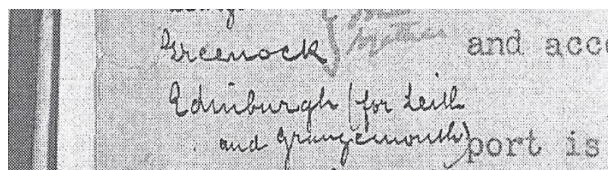 Greenock } together and acc
Edinburgh (for Leith
and Grangemouth) port is